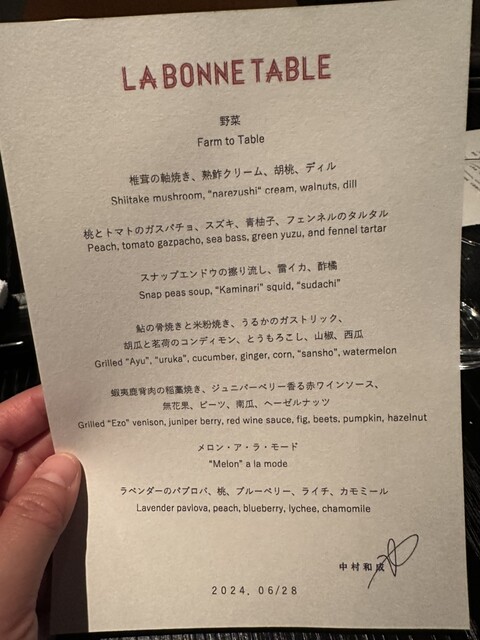 LA BONNE TABLE
野菜
Farm to Table
椎茸の軸焼き、熟鮓クリーム、胡桃、ディル
Shiitake mushroom, "narezushi" cream, walnuts, dill
桃とトマトのガスパチョ、スズキ、青柚子、フェンネルのタルタル
Peach, tomato gazpacho, sea bass, green yuzu, and fennel tartar
スナップエンドウの擦り流し、雷イカ、酢橘
Snap peas soup, "Kaminari" squid, "sudachi"
鮎の骨焼きと米粉焼き、うるかのガストリック、
胡瓜と茗荷のコンディモン、とうもろこし、山椒、西瓜
Grilled "Ayu", "uruka", cucumber, ginger, corn, "sansho", watermelon
蝦夷鹿背肉の稲藁焼き、ジュニパーベリー香る赤ワインソース、
無花果、ビーツ、南瓜、ヘーゼルナッツ
Grilled "Ezo" venison, juniper berry, red wine sauce, fig, beets, pumpkin, hazelnut
メロン・ア・ラ・モード
"Melon" a la mode
ラベンダーのパブロバ、桃、ブルーベリー、ライチ、カモミール
Lavender pavlova, peach, blueberry, lychee, chamomile
中村和成
2024. 06/28